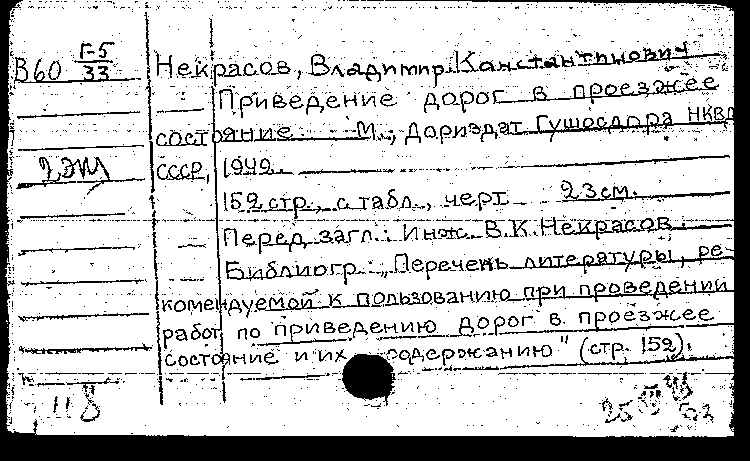 В60 Г-5/33
Некрасов, Владимир Константинович
Приведение дорог в проезжее
состояние. М., Дориздат Гушосдора НКВД
2 эт
СССР, 1942.
152 стр., с табл., черт. 23 см.
Перед загл.: Инж. В.К. Некрасов.
Библиогр.: „Перечень литературы, ре-
комендуемой к пользованию при проведении
работ по приведению дорог в проезжее
состояние и их содержанию" (стр. 152).
118
25